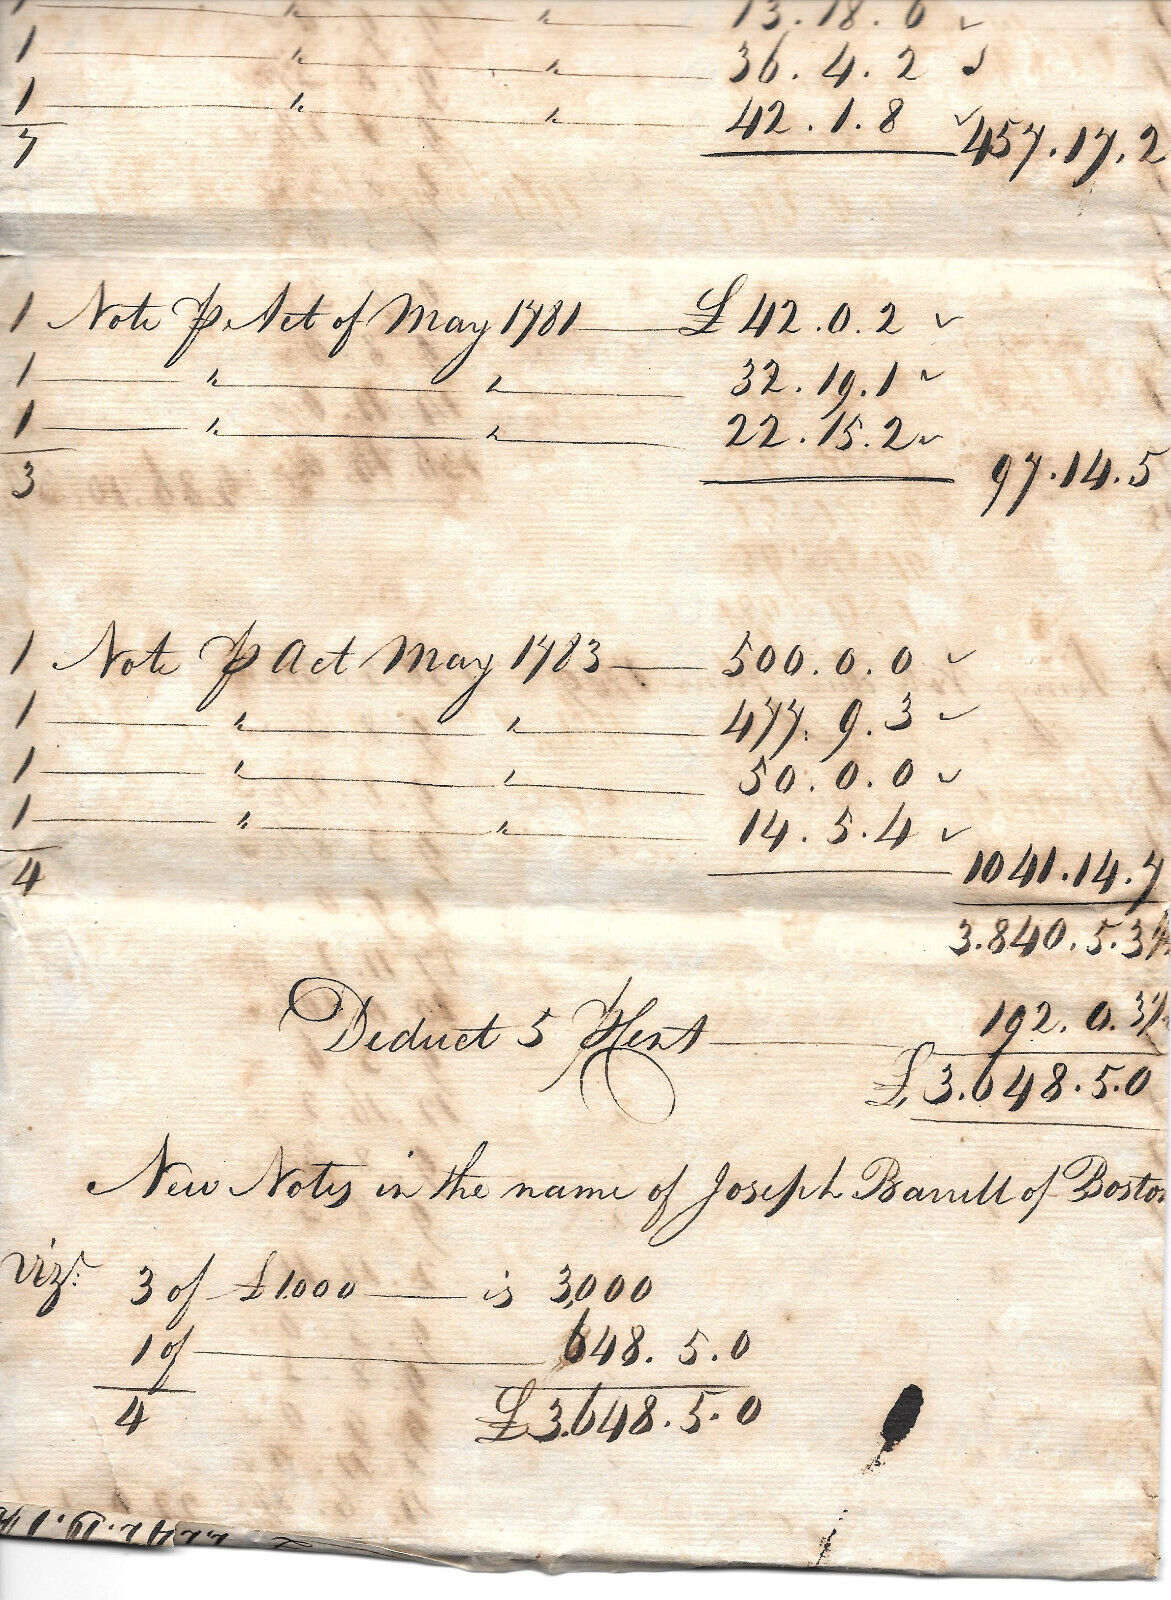 1 " " 13.18.6
1 " " 36.4.2
1 " " 42.1.8
7 457.17.2
1 Note ⅌ Act of May 1781 £42.0.2
1 " " 32.19.1
1 " " 22.15.2
3 97.14.5
1 Note ⅌ Act May 1783 500.0.0
1 " " 477.9.3
1 " " 50.0.0
1 " " 14.5.4
4 1041.14.7
3.840.5.3½
Deduct 5 ⅌Cent 192.0.3½
£3.648.5.0
New Notes in the name of Joseph Barrell of Boston
Vizt: 3 of £1000 is 3,000
1 of 648.5.0
4 £3.648.5.0